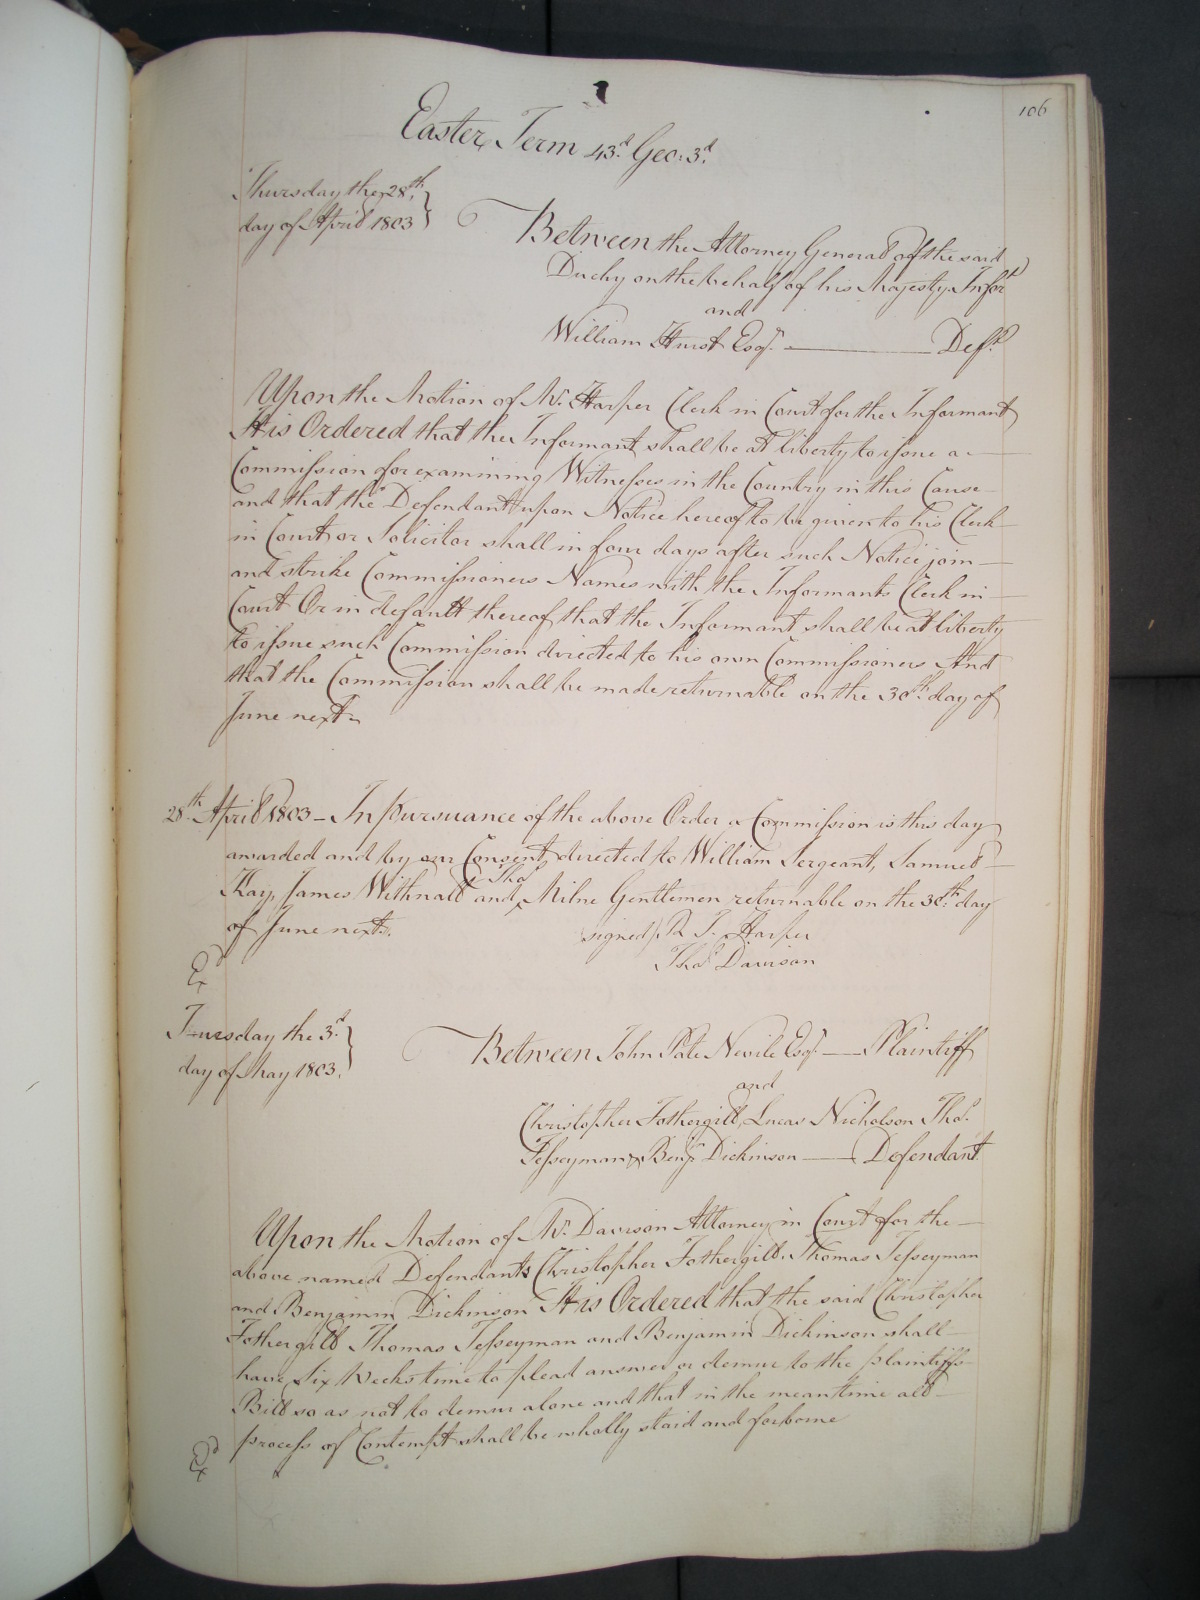 106
Easter Term 43.d Geo: 3.d
Thursday the 28.th
day of April 1803
Between the Attorney General of the said
Duchy on the behalf of his Majesty Infor.t
and
William Hurst Esq.r Def.t
Upon the Motion of M.r Harper Clerk in Court for the Informant
It is Ordered that the Informant shall be at liberty to issue a
Commission for examining Witnesses in the Country in this Cause
and that the Defendant upon Notice hereof to be given to his Clerk
in Court or Solicitor shall in four days after such Notice join
and strike Commissioners Names with the Informants Clerk in
Court Or in default thereof that the Informant shall be at liberty
to issue such Commission directed to his own Commissioners And
that the Commission shall be made returnable on the 30.th day of
June next
28.th April 1803 - In pursuance of the above Order a Commission is this day
awarded and by our Consent directed to William Sergeant, Samuel
Kay, James Withnall and Tho.s Milne Gentlemen returnable on the 30.th day
of June next.
signed R. T. Harper
Tho.s Davison
Ex.d
Tuesday the 3.d
day of May 1803.
Between John Pate Nevile Esq.r Plaintiff
and
Christopher Fothergill, Lucas Nicholson Tho.s
Tesseyman & Benj.n Dickinson Defendant
Upon the Motion of M.r Davison Attorney in Court for the
above named Defendants Christopher Fothergill Thomas Tesseyman
and Benjamin Dickinson It is Ordered that the said Christopher
Fothergill Thomas Tesseyman and Benjamin Dickinson shall
have Six Weeks time to plead answer or demur to the plaintiffs
Bill so as not to demur alone and that in the meantime all
process of Contempt shall be wholly staid and forborne
Ex.d